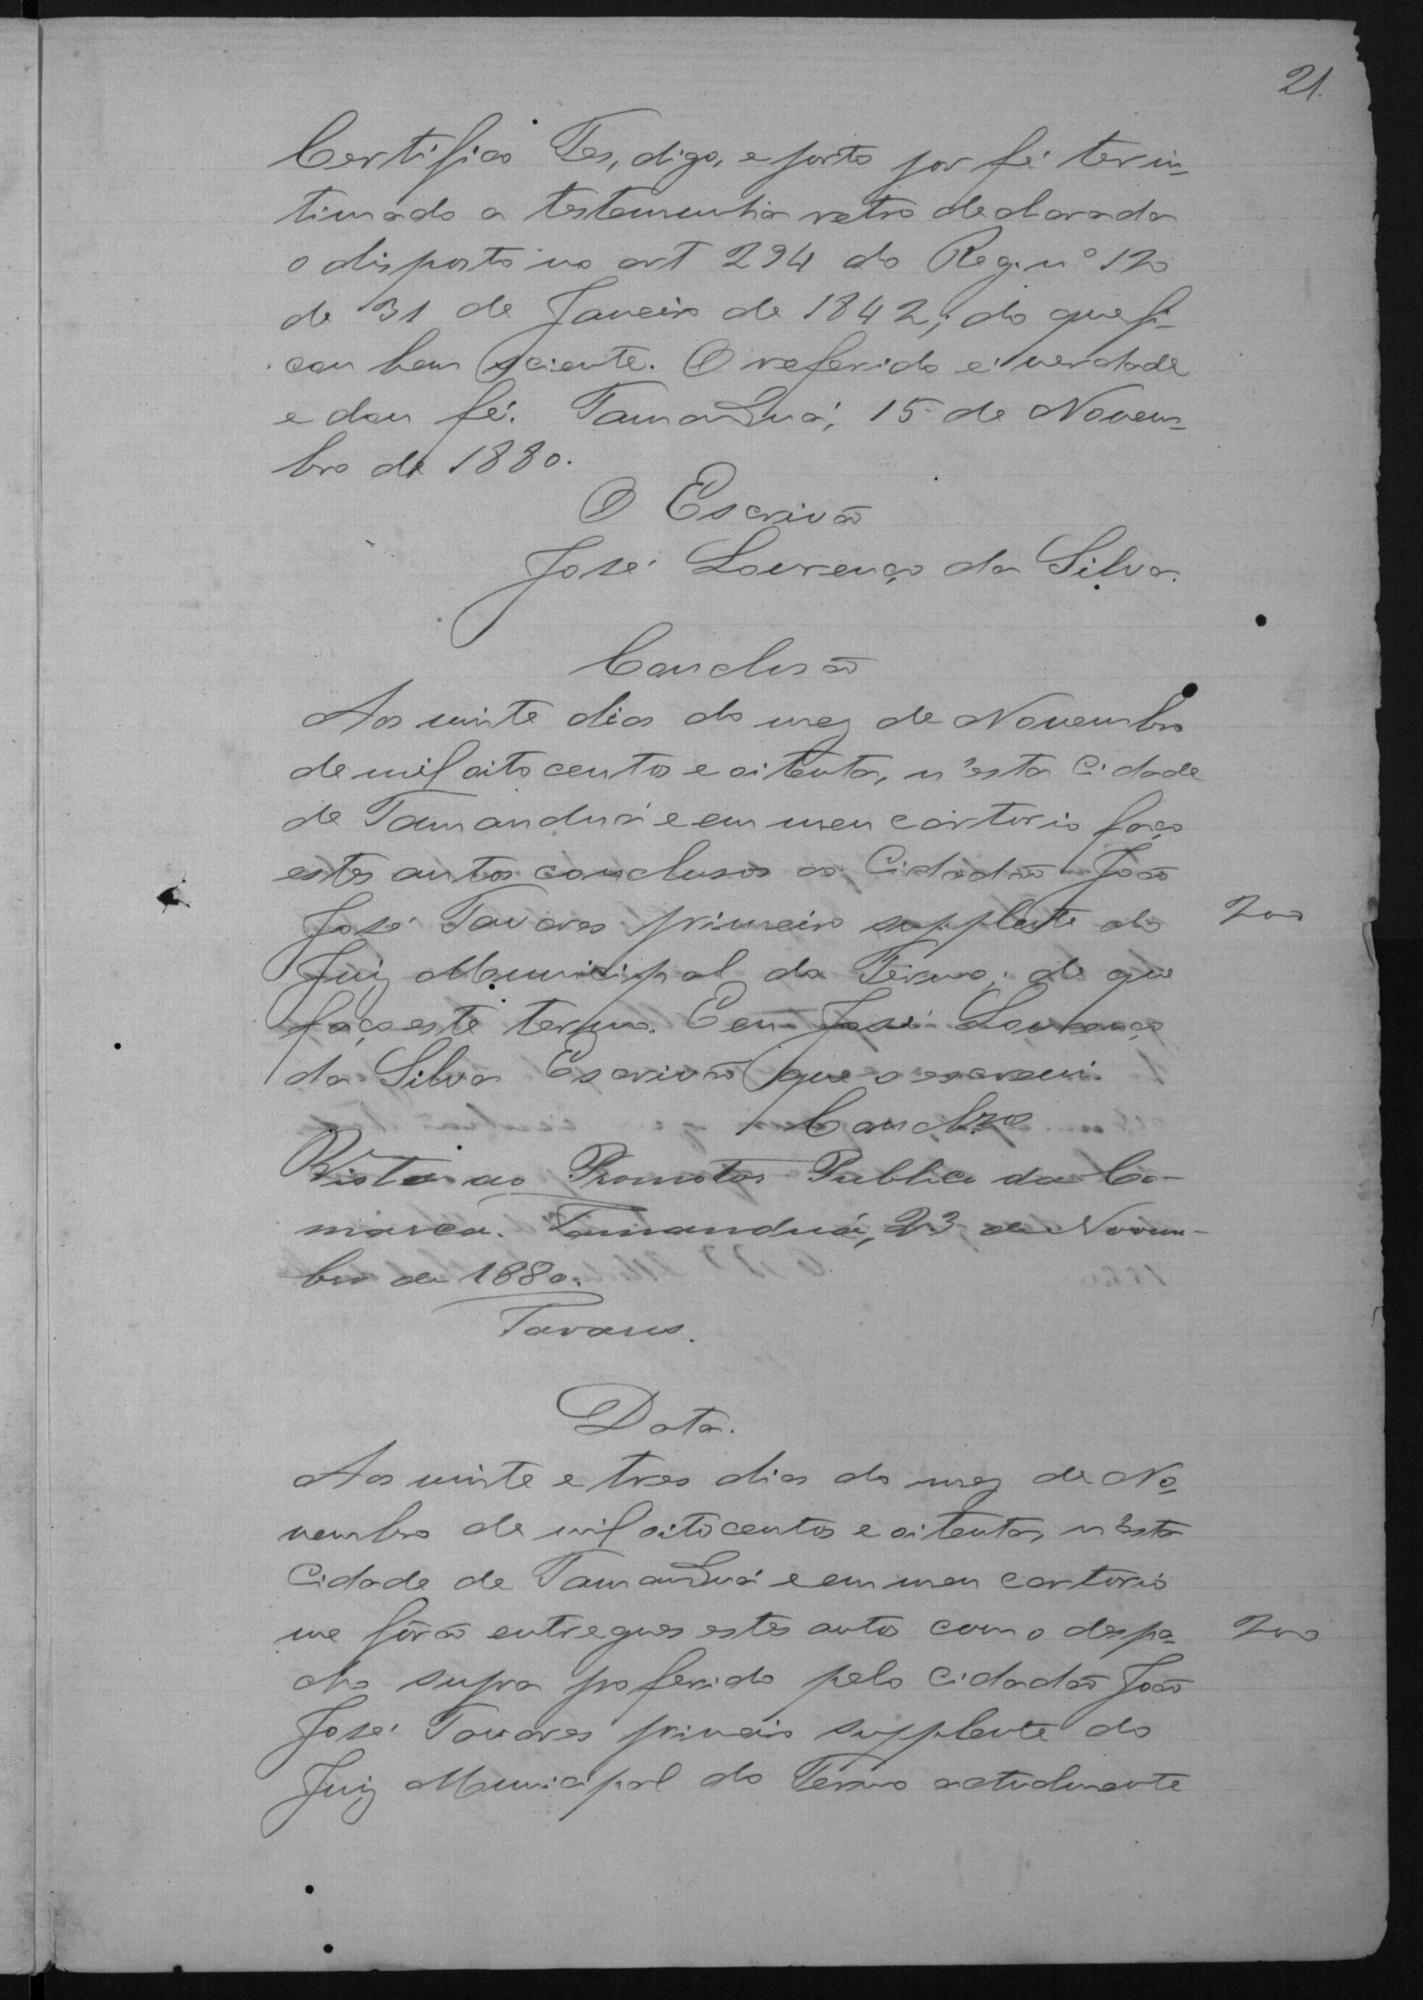 21.
Certifico Tes, digo, e porto por fé ter in-
timado a testemunha retro declarada
o disposto no art 294 do Reg. nº 120
de 31 de Janeiro de 1842; do que fi-
cou bem sciente. O referido é verdade
e dou fé. Tamanduá, 15 de Novem-
bro de 1880.
O Escrivão
José Lourenço da Silva.
Conclusão
Aos vinte dias do mez de Novembro
de mil oito centos e oitenta, n'esta Cidade
de Tamanduá e em meu cartorio faço
estes autos conclusos ao Cidadão João
José Tavares primeiro supplente do
200
Juiz Municipal do Termo; de que
faço este termo. E eu José Lourenço
da Silva Escrivão que o escrevi.
Conclzos
Vista ao Promotor Publico da Co-
marca. Tamanduá, 23 de Novem-
bro de 1880.
Tavares.
Data.
Aos vinte e tres dias do mez de No-
vembro de mil oito centos e oitenta, n'esta
Cidade de Tamanduá e em meu cartorio
me fôrão entregues estes auto com o despa-
200
cho supra proferido pelo cidadão João
José Tavares primeiro supplente do
Juiz Municipal do Termo actualmente